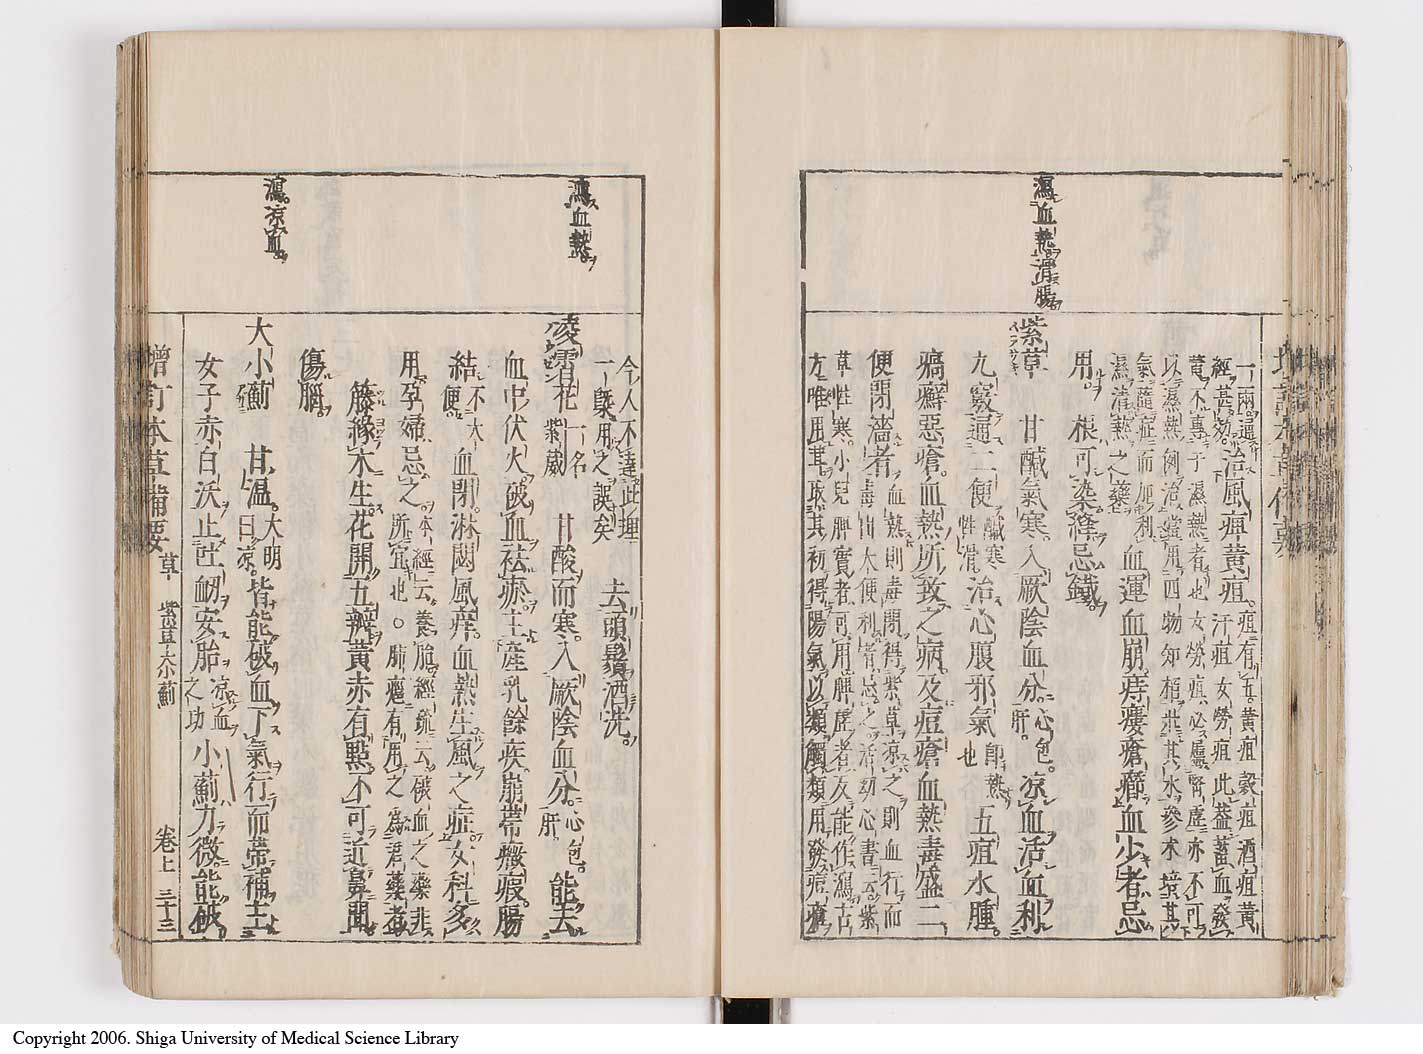 瀉血熱滑腸
一兩。通
經甚效。
治風痺黃疸。
疸有五。黃疸穀疸酒疸黃
汗疸女勞疸此蓋蓄血發
黃。不專于濕熱者也女勞疸必屬腎虛亦不可
以濕熱例治當用四物知栢壯其水參朮培其
氣隨症而加利
濕清熱之藥
血運血崩痔瘻瘡癤血少者忌
用。根可染絳忌鐵。
紫草 甘鹹氣寒入厥陰血分。心包肝。涼血活血利
九竅通二便鹹寒性滑治心腹邪氣即熱也五疸水腫。
瘑癬惡瘡。血熱所致之病。及痘瘡血熱毒盛二
便閉濇者
血熱則毒閉得紫草涼之則血行而
毒出大便利者忌之活幼心書云紫
草性寒。小兒脾實者可用脾虛者反能作瀉古
方唯用茸取其初得陽氣以類觸類用發痘瘡
瀉血熱。
瀉涼血。
今人不達此理
一槩用之誤矣
去頭鬚酒洗。
凌霄花 一名紫葳 甘酸而寒。入厥陰血分。心包。肝。能去
血中伏火。破血祛瘀。主產乳餘疾崩帶癥瘕。腸
結不大便。血閉。淋閟風痒。血熱生風之症。女科多
用孕婦忌之。
本經云養胞經疏云破血之藥非
所宜也。○肺癰有用之為君藥者
藤緣木生。花開五瓣黃赤有點不可近鼻聞
傷腦。
大小薊 甘溫。大明曰涼。皆能破血下氣行而帶補。土
女子赤白沃止吐衄安胎涼血之功小薊力微。能破
增訂本草備要 草 紫草大小薊 卷上 三十三
Copyright 2006. Shiga University of Medical Science Library